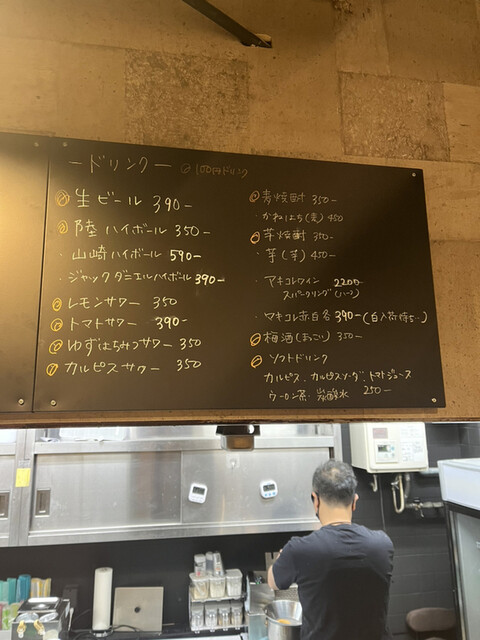 ードリンクー ◎100円ドリンク
◎生ビール 390-
◎陸ハイボール 350-
・山崎ハイボール 590-
・ジャックダニエルハイボール 390-
◎レモンサワー 350
◎トマトサワー 390-
◎ゆずはちみつサワー 350
◎カルピスサワー 350
◎麦焼酎 350-
・かねはち(麦) 450
◎芋焼酎 350-
・芋(芋) 450-
・アキコレワイン 2200
スパークリング(ハーフ)
・マキコレ赤白各 390-(白入荷待ち…)
◎梅酒(あっこい) 350-
◎ソフトドリンク
カルピス、カルピスソーダ、トマトジュース
ウーロン茶・炭酸水 250-